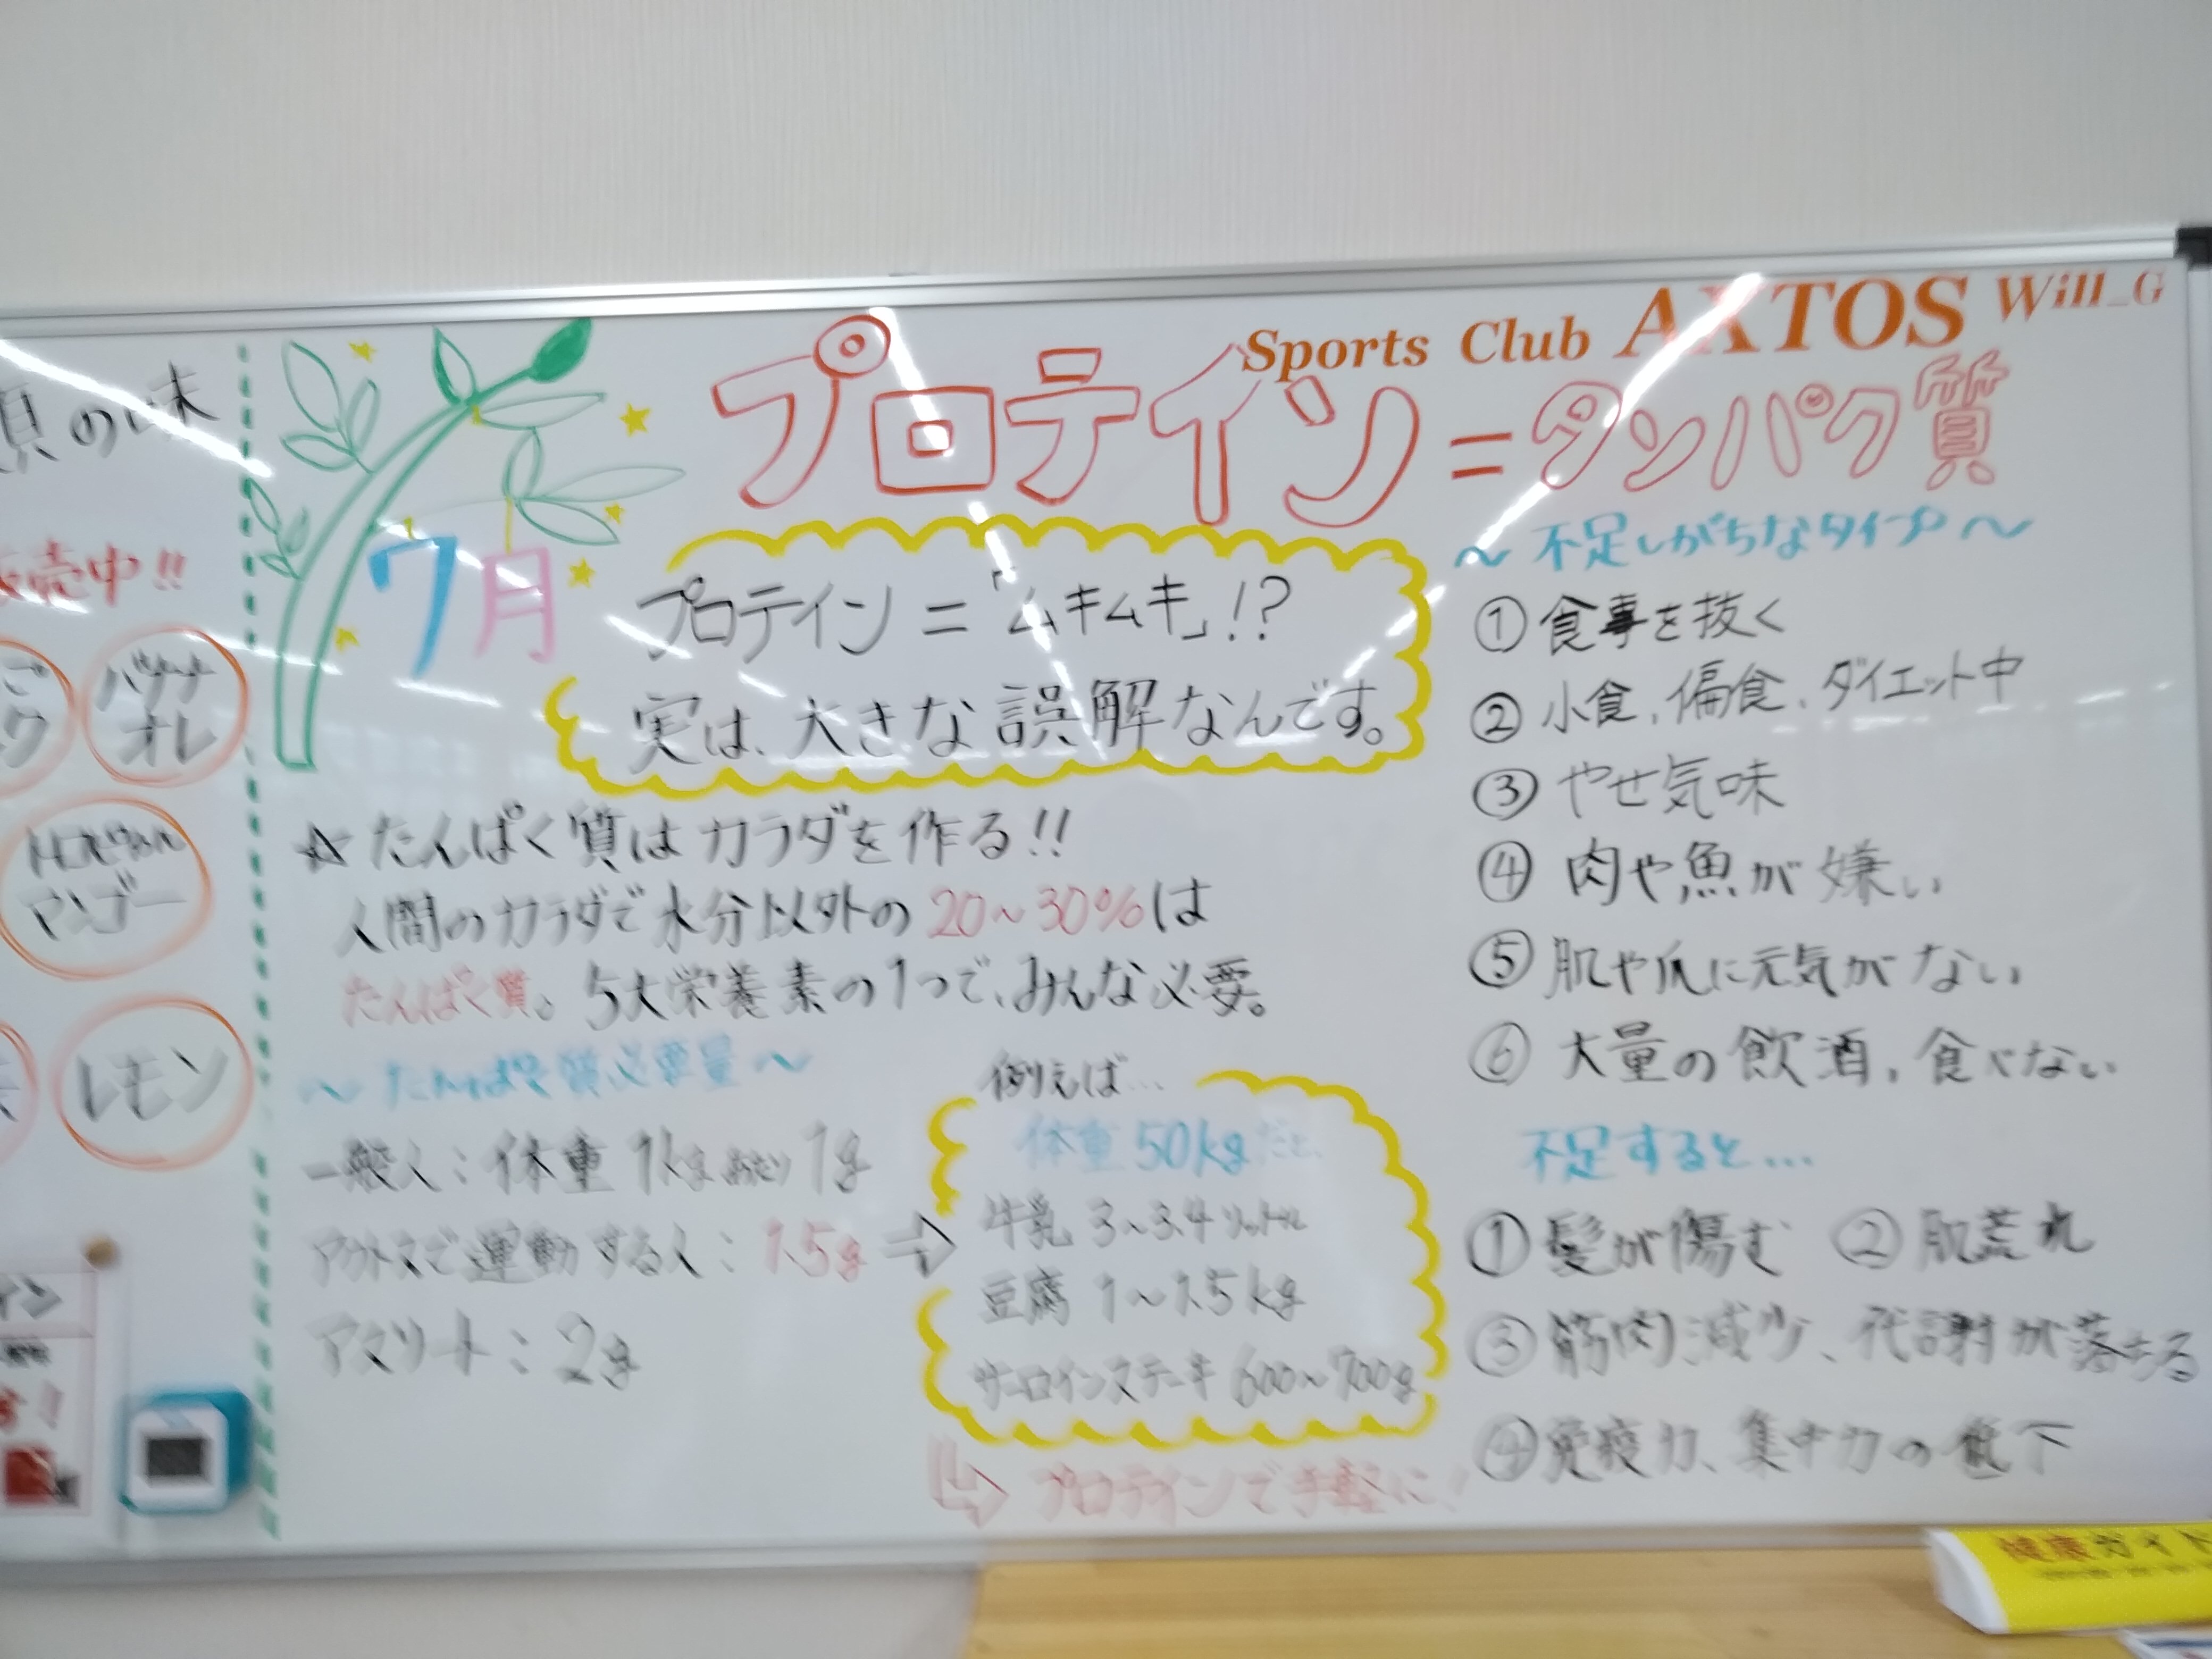 Sports Club AXTOS Will_G
プロテイン=タンパク質
7月
プロテイン=「ムキムキ」!?
実は、大きな誤解なんです。
☆たんぱく質はカラダを作る!!
人間のカラダで水分以外の20~30%は
たんぱく質。5大栄養素の1つで、みんな必要。
~たんぱく質必要量~
一般人:体重1kgあたり1g
アクトスで運動する人:1.5g
アスリート:2g
例えば…
体重50kgだと、
牛乳 3~3.4リットル
豆腐 1~1.5kg
サーロインステーキ 600~700g
プロテインで手軽に!
~不足しがちなタイプ~
①食事を抜く
②小食、偏食、ダイエット中
③やせ気味
④肉や魚が嫌い
⑤肌や爪に元気がない
⑥大量の飲酒、食べない
不足すると…
①髪が傷む ②肌荒れ
③筋肉減少、代謝が落ちる
④免疫力、集中力の低下
の味
売中!!
バナナ
オレ
トロピカル
マンゴー
レモン
イン
健康ガイド